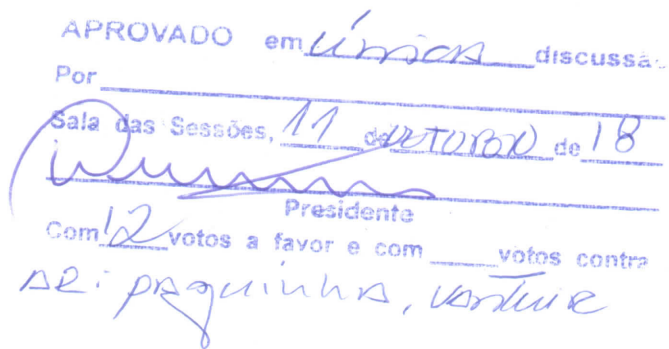 APROVADO em única discussã
Por
Sala das Sessões, 11 de OUTUBRO de 18
Presidente
Com 12 votos a favor e com votos contra